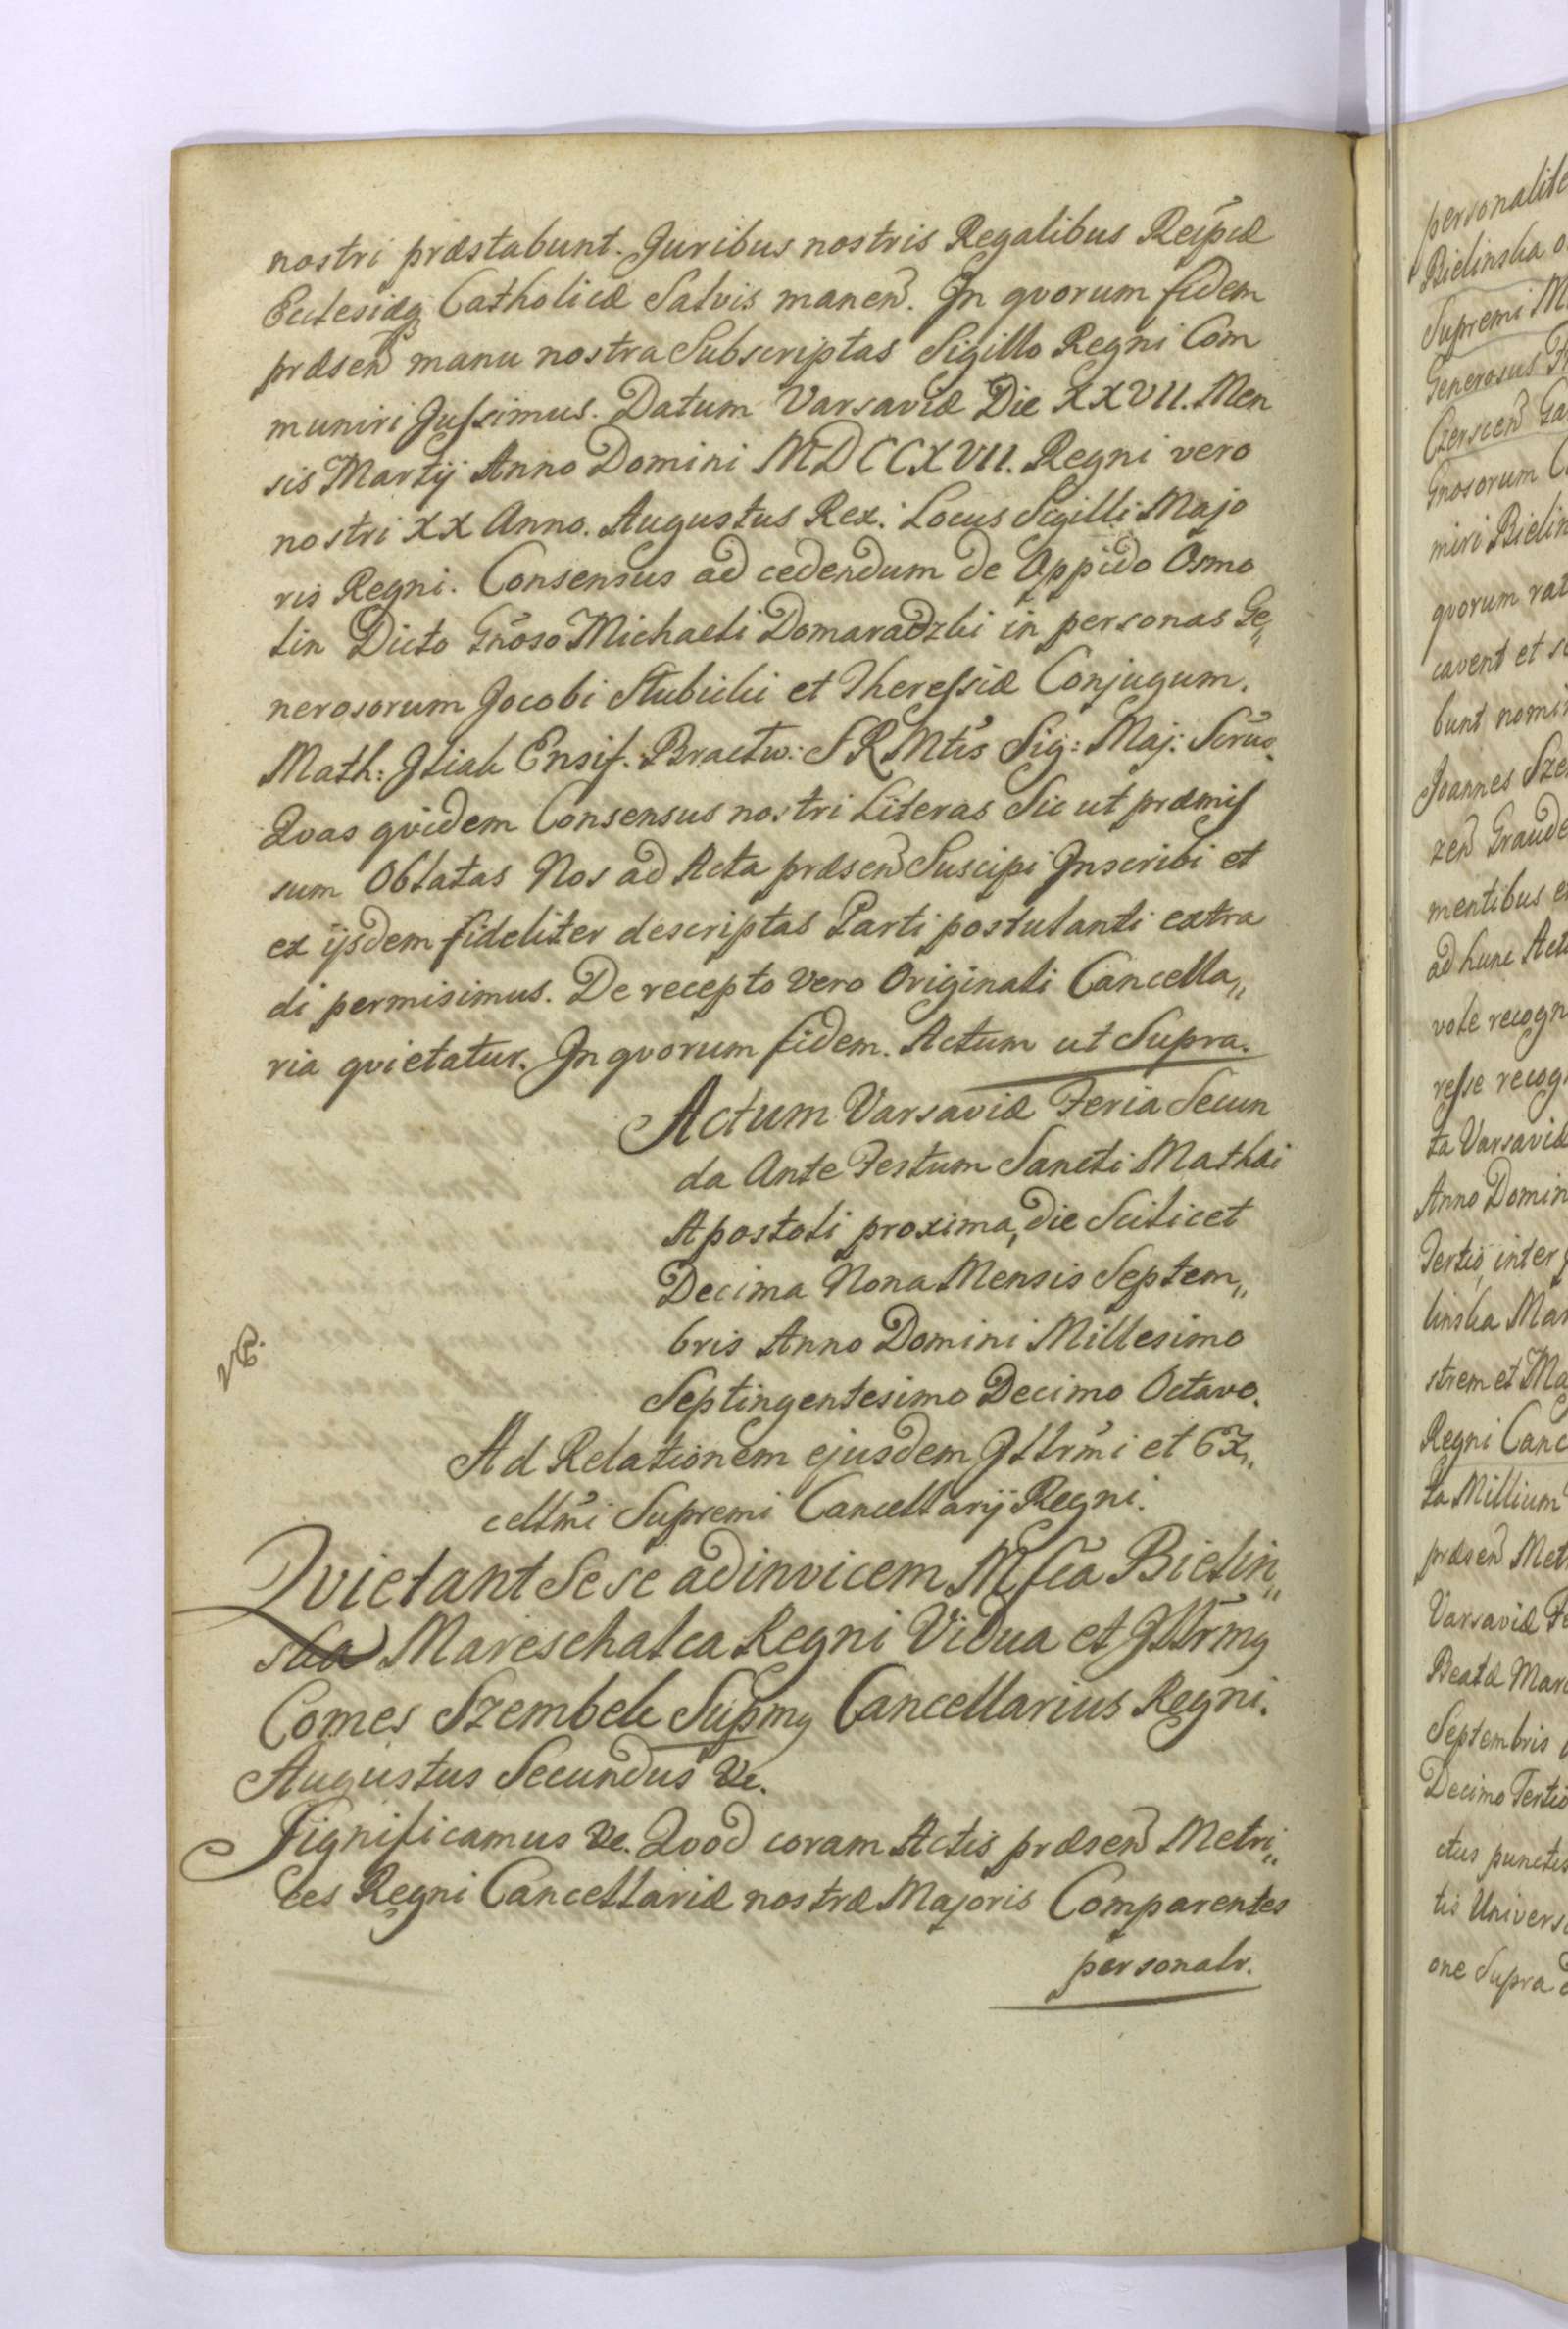 nostri præstabunt. Juribus nostris Regalibus Reipcæ
Ecclesiæq Catholicæ Salvis manen. In qvorum fidem
præsen manu nostra Subscriptas Sigillo Regni Com
muniri Jussimus. Datum Varsaviæ Die XXVII. Men
sis Martij Anno Domini MDCCXVII. Regni vero
nostri XX Anno. Augustus Rex. Locus Sigilli Majo
ris Regni. Consensus ad cedendum de Oppido Osmo
lin Dicto Gnoso Michaeli Domaradzki in personas Ge„
nerosorum Jacobi Slubicki et Theressiæ Conjugum.
Math: Jliak Ensif. Bractw: S R Mtis Sig: Maj:
Qvas qvidem Consensus nostri Literas Sic ut præmis
sum Oblatas Nos ad Acta præsen Suscipi Inscribi et
ex ijsdem fideliter descriptas Parti postulanti extra
di permisimus. De recepto vero Originali Cancella„
ria qvietatur. In qvorum fidem. Actum ut Supra.
Actum Varsaviæ Feria Secun
da Ante Festum Sancti Mathæi
Apostoli proxima, die Scilicet
Decima Nona Mensis Septem„
bris Anno Domini Millesimo
Septingentesimo Decimo Octavo.
Ad Relationem ejusdem Jllrmi et Ex„
cellmi Supremi Cancellarij Regni.
Qvietant Sese adinvicem Mfca Bielin„
ska Mareschalca Regni Vidua et Jllrmq
Comes Szembek Supmq Cancellarius Regni.
Augustus Secundus &c.
Significamus &c. Qvod coram Actis præsen Metri„
ces Regni Cancellariæ nostræ Majoris Comparentes
personalr.
personalite
Bielinska
Supremi M
Generosus
Czerscen
Gnosorum
miri Bielin
qvorum rat
cavent et
bunt nomi
Joannes Sze
zen Graude
mentibus
ad hunc Act
vole recogn
resse recog
ta Varsaviæ
Anno Domin
Tertio, inter
linska Mar
strem et Ma
Regni Canc
ta Millium
præsen Met
Varsaviæ
Beatæ Mari
Septembris
Decimo Tertio
ctus punctis
tis Univers
one Supra